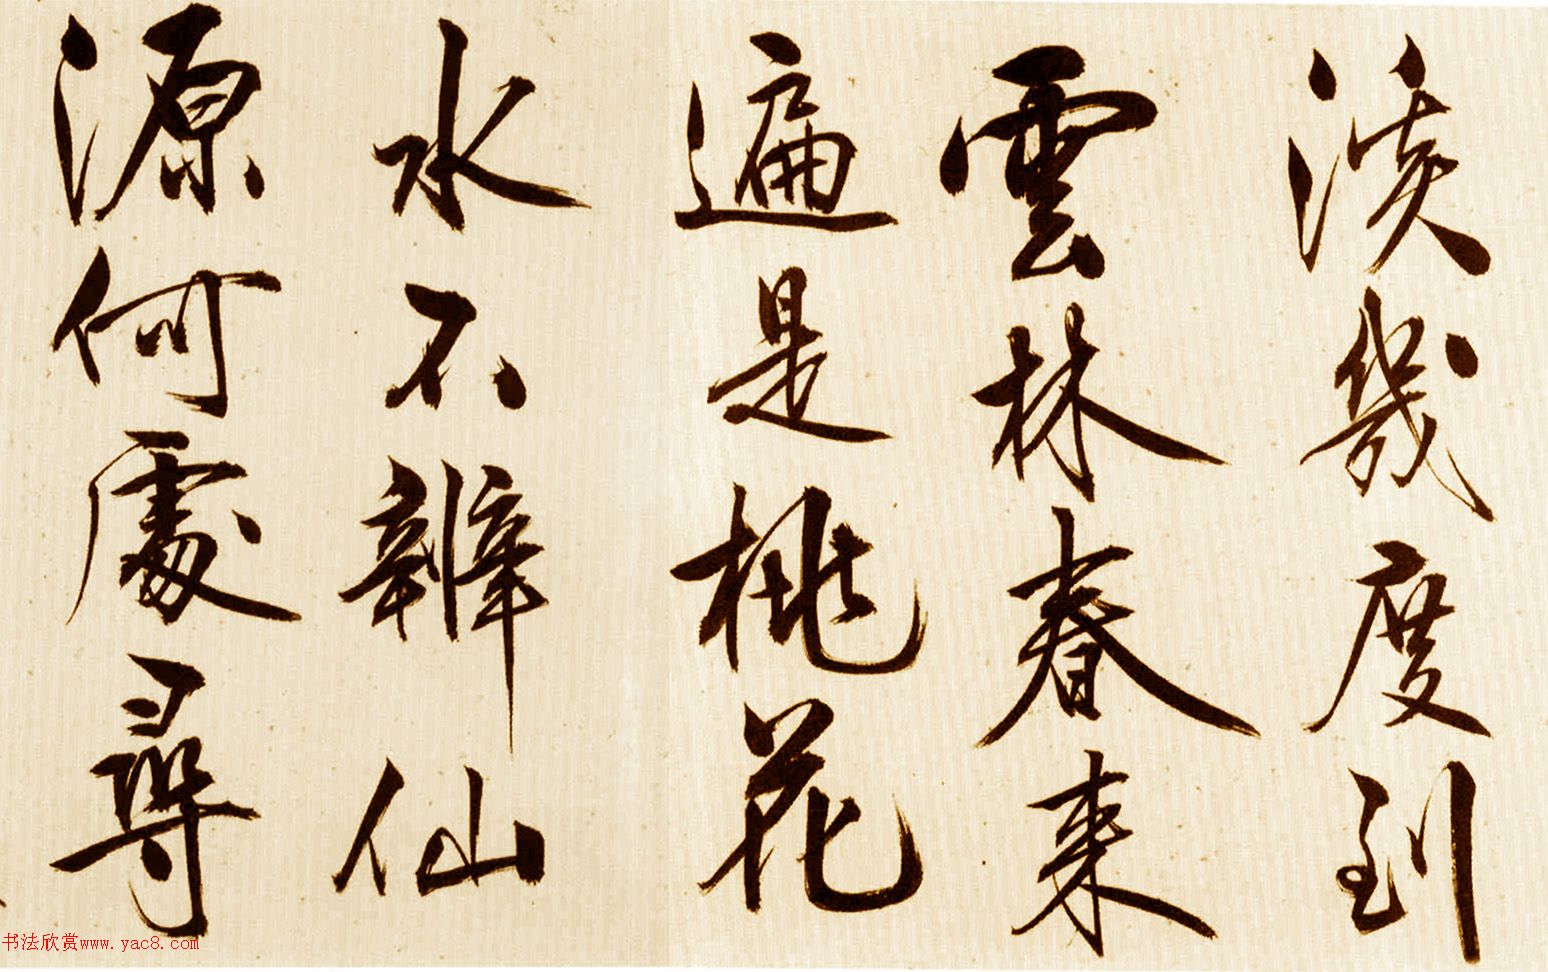 溪幾度到
雲林春来
遍是桃花
水不辨仙
源何處尋
书法欣赏www.yac8.com